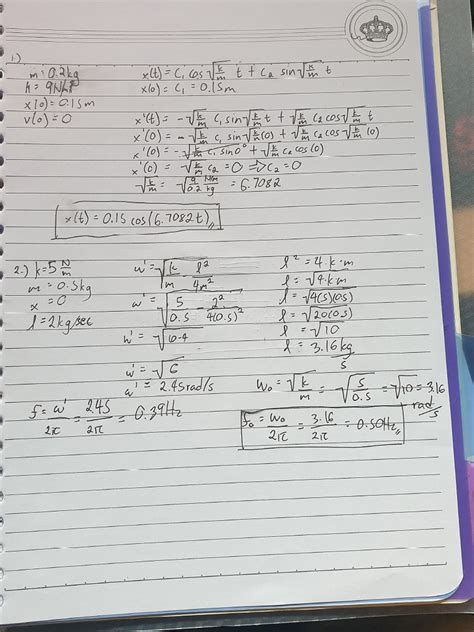 1.)
m = 0.2kg
k = 9N/m
x(0) = 0.15m
v(0) = 0
x(t) = C₁ cos √(k/m) t + C₂ sin √(k/m) t
x(0) = C₁ = 0.15m
x'(t) = -√(k/m) C₁ sin √(k/m) t + √(k/m) C₂ cos √(k/m) t
x'(0) = -√(k/m) C₁ sin √(k/m) (0) + √(k/m) C₂ cos √(k/m) (0)
x'(0) = -√(k/m) C₁ sin 0° + √(k/m) C₂ cos (0)
x'(0) = √(k/m) C₂ = 0 ⇒ C₂ = 0
√(k/m) = √(9 N/m / 0.2 kg) = 6.7082
x(t) = 0.15 cos (6.7082t)
2.) k = 5 N/m
m = 0.5kg
x = 0
l = 2kg/sec
w' = √(k/m - l²/4m²)
w' = √(5/0.5 - 2²/4(0.5)²)
w' = √(10-4)
w' = √6
w' = 2.45rad/s
f = w'/2π = 2.45/2π = 0.39Hz
l² = 4·k·m
l = √(4·k·m)
l = √(4(5)(0.5))
l = √(20(0.5))
l = √10
l = 3.16 kg/s
W₀ = √(k/m) = √(5/0.5) = √10 = 3.16 rad/s
f₀ = W₀/2π = 3.16/2π = 0.50Hz